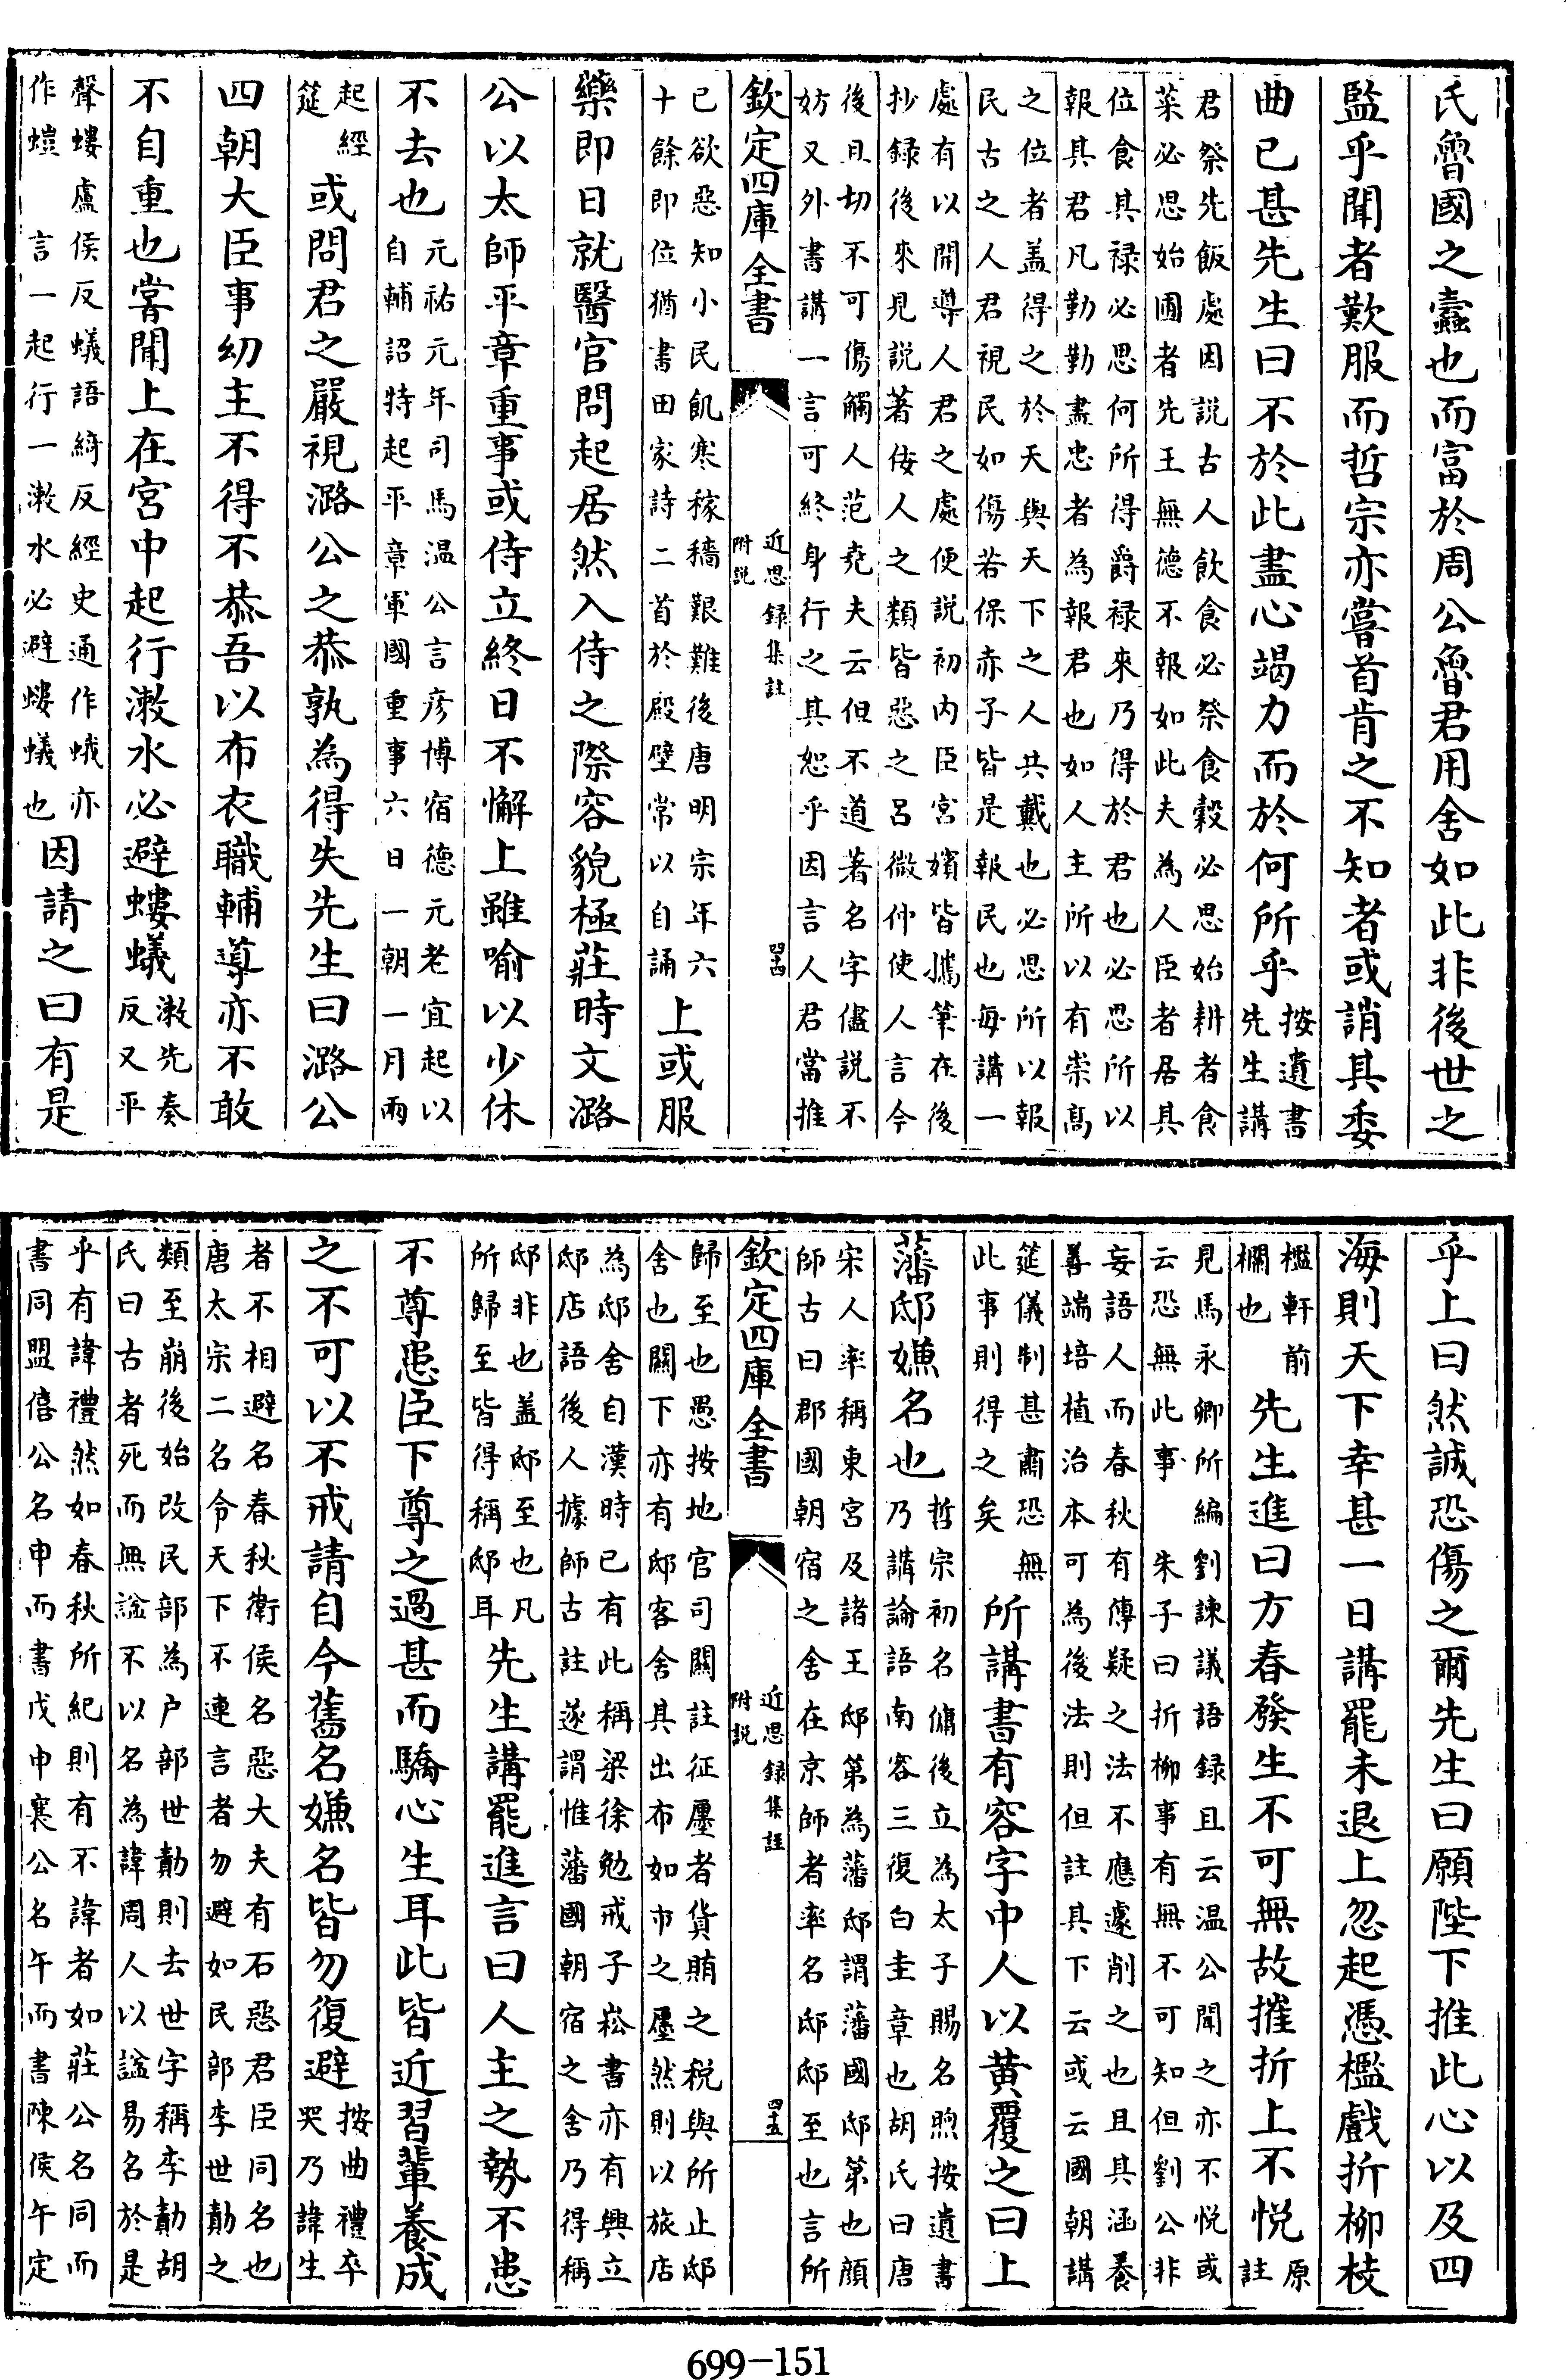 氏魯國之蠹也而富於周公魯君用舍如此非後世之
監乎聞者歎服而哲宗亦嘗首肯之不知者或誚其委
曲已甚先生曰不於此盡心竭力而於何所乎按遺書
先生講
君祭先飯處因説古人飲食必祭食穀必思始耕者食
菜必思始圃者先王無德不報如此夫為人臣者居其
位食其禄必思何所得爵禄來乃得於君也必思所以
報其君凡勤勤盡忠者為報君也如人主所以有崇高
之位者盖得之於天與天下之人共戴也必思所以報
民古之人君視民如傷若保赤子皆是報民也每講一
處有以開導人君之處便説初内臣宮嬪皆攜筆在後
抄録後來見説著佞人之類皆惡之吕微仲使人言今
後且切不可傷觸人范堯夫云但不道著名字儘説不
妨又外書講一言可終身行之其恕乎因言人君當推
欽定四庫全書
近思録集註
附説
四十四
已欲惡知小民飢寒稼穡艱難後唐明宗年六
十餘即位猶書田家詩二首於殿壁常以自誦上或服
藥即日就醫官問起居然入侍之際容貌極莊時文潞
公以太師平章重事或侍立終日不懈上雖喻以少休
不去也元祐元年司馬温公言彦博宿德元老宜起以
自輔詔特起平章軍國重事六日一朝一月兩
起經
筵或問君之嚴視潞公之恭孰為得失先生曰潞公
四朝大臣事幼主不得不恭吾以布衣職輔導亦不敢
不自重也嘗聞上在宮中起行漱水必避螻蟻漱先奏
反又平
聲螻盧侯反蟻語綺反經史通作蛾亦
作螘 言一起行一漱水必避螻蟻也因請之曰有是
乎上曰然誠恐傷之爾先生曰願陛下推此心以及四
海則天下幸甚一日講罷未退上忽起憑檻戲折柳枝
檻軒前
欄也先生進曰方春發生不可無故摧折上不悦原
註
見馬永卿所編劉諫議語録且云温公聞之亦不悦或
云恐無此事 朱子曰折柳事有無不可知但劉公非
妄語人而春秋有傳疑之法不應遽削之也且其涵養
善端培植治本可為後法則但註其下云或云國朝講
筵儀制甚肅恐無
此事則得之矣所講書有容字中人以黄覆之曰上
藩邸嫌名也哲宗初名傭後立為太子賜名煦按遺書
乃講論語南容三復白圭章也胡氏曰唐
宋人率稱東宮及諸王邸第為藩邸謂藩國邸第也顔
師古曰郡國朝宿之舍在京師者率名邸邸至也言所
欽定四庫全書
近思録集註
附説
四十五
歸至也愚按地官司闗註征廛者貨賄之税與所止邸
舍也闗下亦有邸客舍其出布如市之廛然則以旅店
為邸舍自漢時已有此稱梁徐勉戒子崧書亦有興立
邸店語後人據師古註遂謂惟藩國朝宿之舍乃得稱
邸非也盖邸至也凡
所歸至皆得稱邸耳先生講罷進言曰人主之勢不患
不尊患臣下尊之過甚而驕心生耳此皆近習輩養成
之不可以不戒請自今舊名嫌名皆勿復避按曲禮卒
哭乃諱生
者不相避名春秋衛侯名惡大夫有石惡君臣同名也
唐太宗二名令天下不連言者勿避如民部李世勣之
類至崩後始改民部為户部世勣則去世字稱李勣胡
氏曰古者死而無諡不以名為諱周人以諡易名於是
乎有諱禮然如春秋所紀則有不諱者如莊公名同而
書同盟僖公名申而書戊申襄公名午而書陳侯午定
699-151